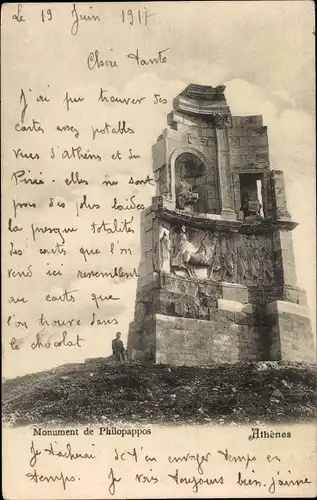 Le 19 Juin 1917
Chère Tante
J'ai pu trouver des
cartes assez potables
vues d'Athèns et du
Pirée. elles ne sont
pas des plus laides
la presque totalités
des carts que l'on
vend ici ressemblent
au carts que
l'on trouve dans
le chocolat
Monument de Philopappos
Athènes
Je t'acherai d't'en envoyer temps en
temps. Je vais toujours bien, j'aime